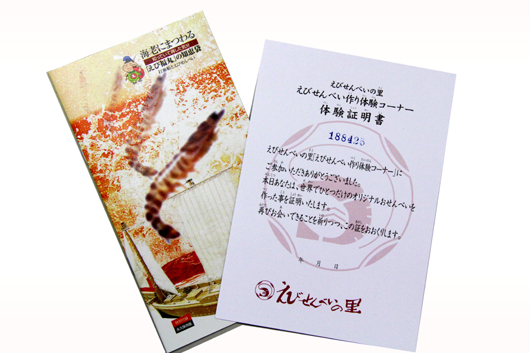 海老にまつわる
「えび福丸」の知恵袋
えびせんべいの里
えびせんべい作り体験コーナー
体験証明書
188425
えびせんべいの里「えびせんべい作り体験コーナー」に
ご参加いただきありがとうございました。
本日あなたは、世界でひとつだけのオリジナルおせんべいを
作った事を証明いたします。
再びお会いできることを祈りつつ、この証をおおくりします。
年 月 日
えびせんべいの里